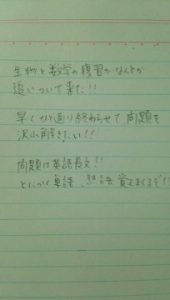 生物と数学の復習がなんとか
追いついて来た!!
早くひと通り終わらせて問題を
沢山解きたい!!
問題は英語長文!!
とにかく単語、熟語覚えまくるぞ!